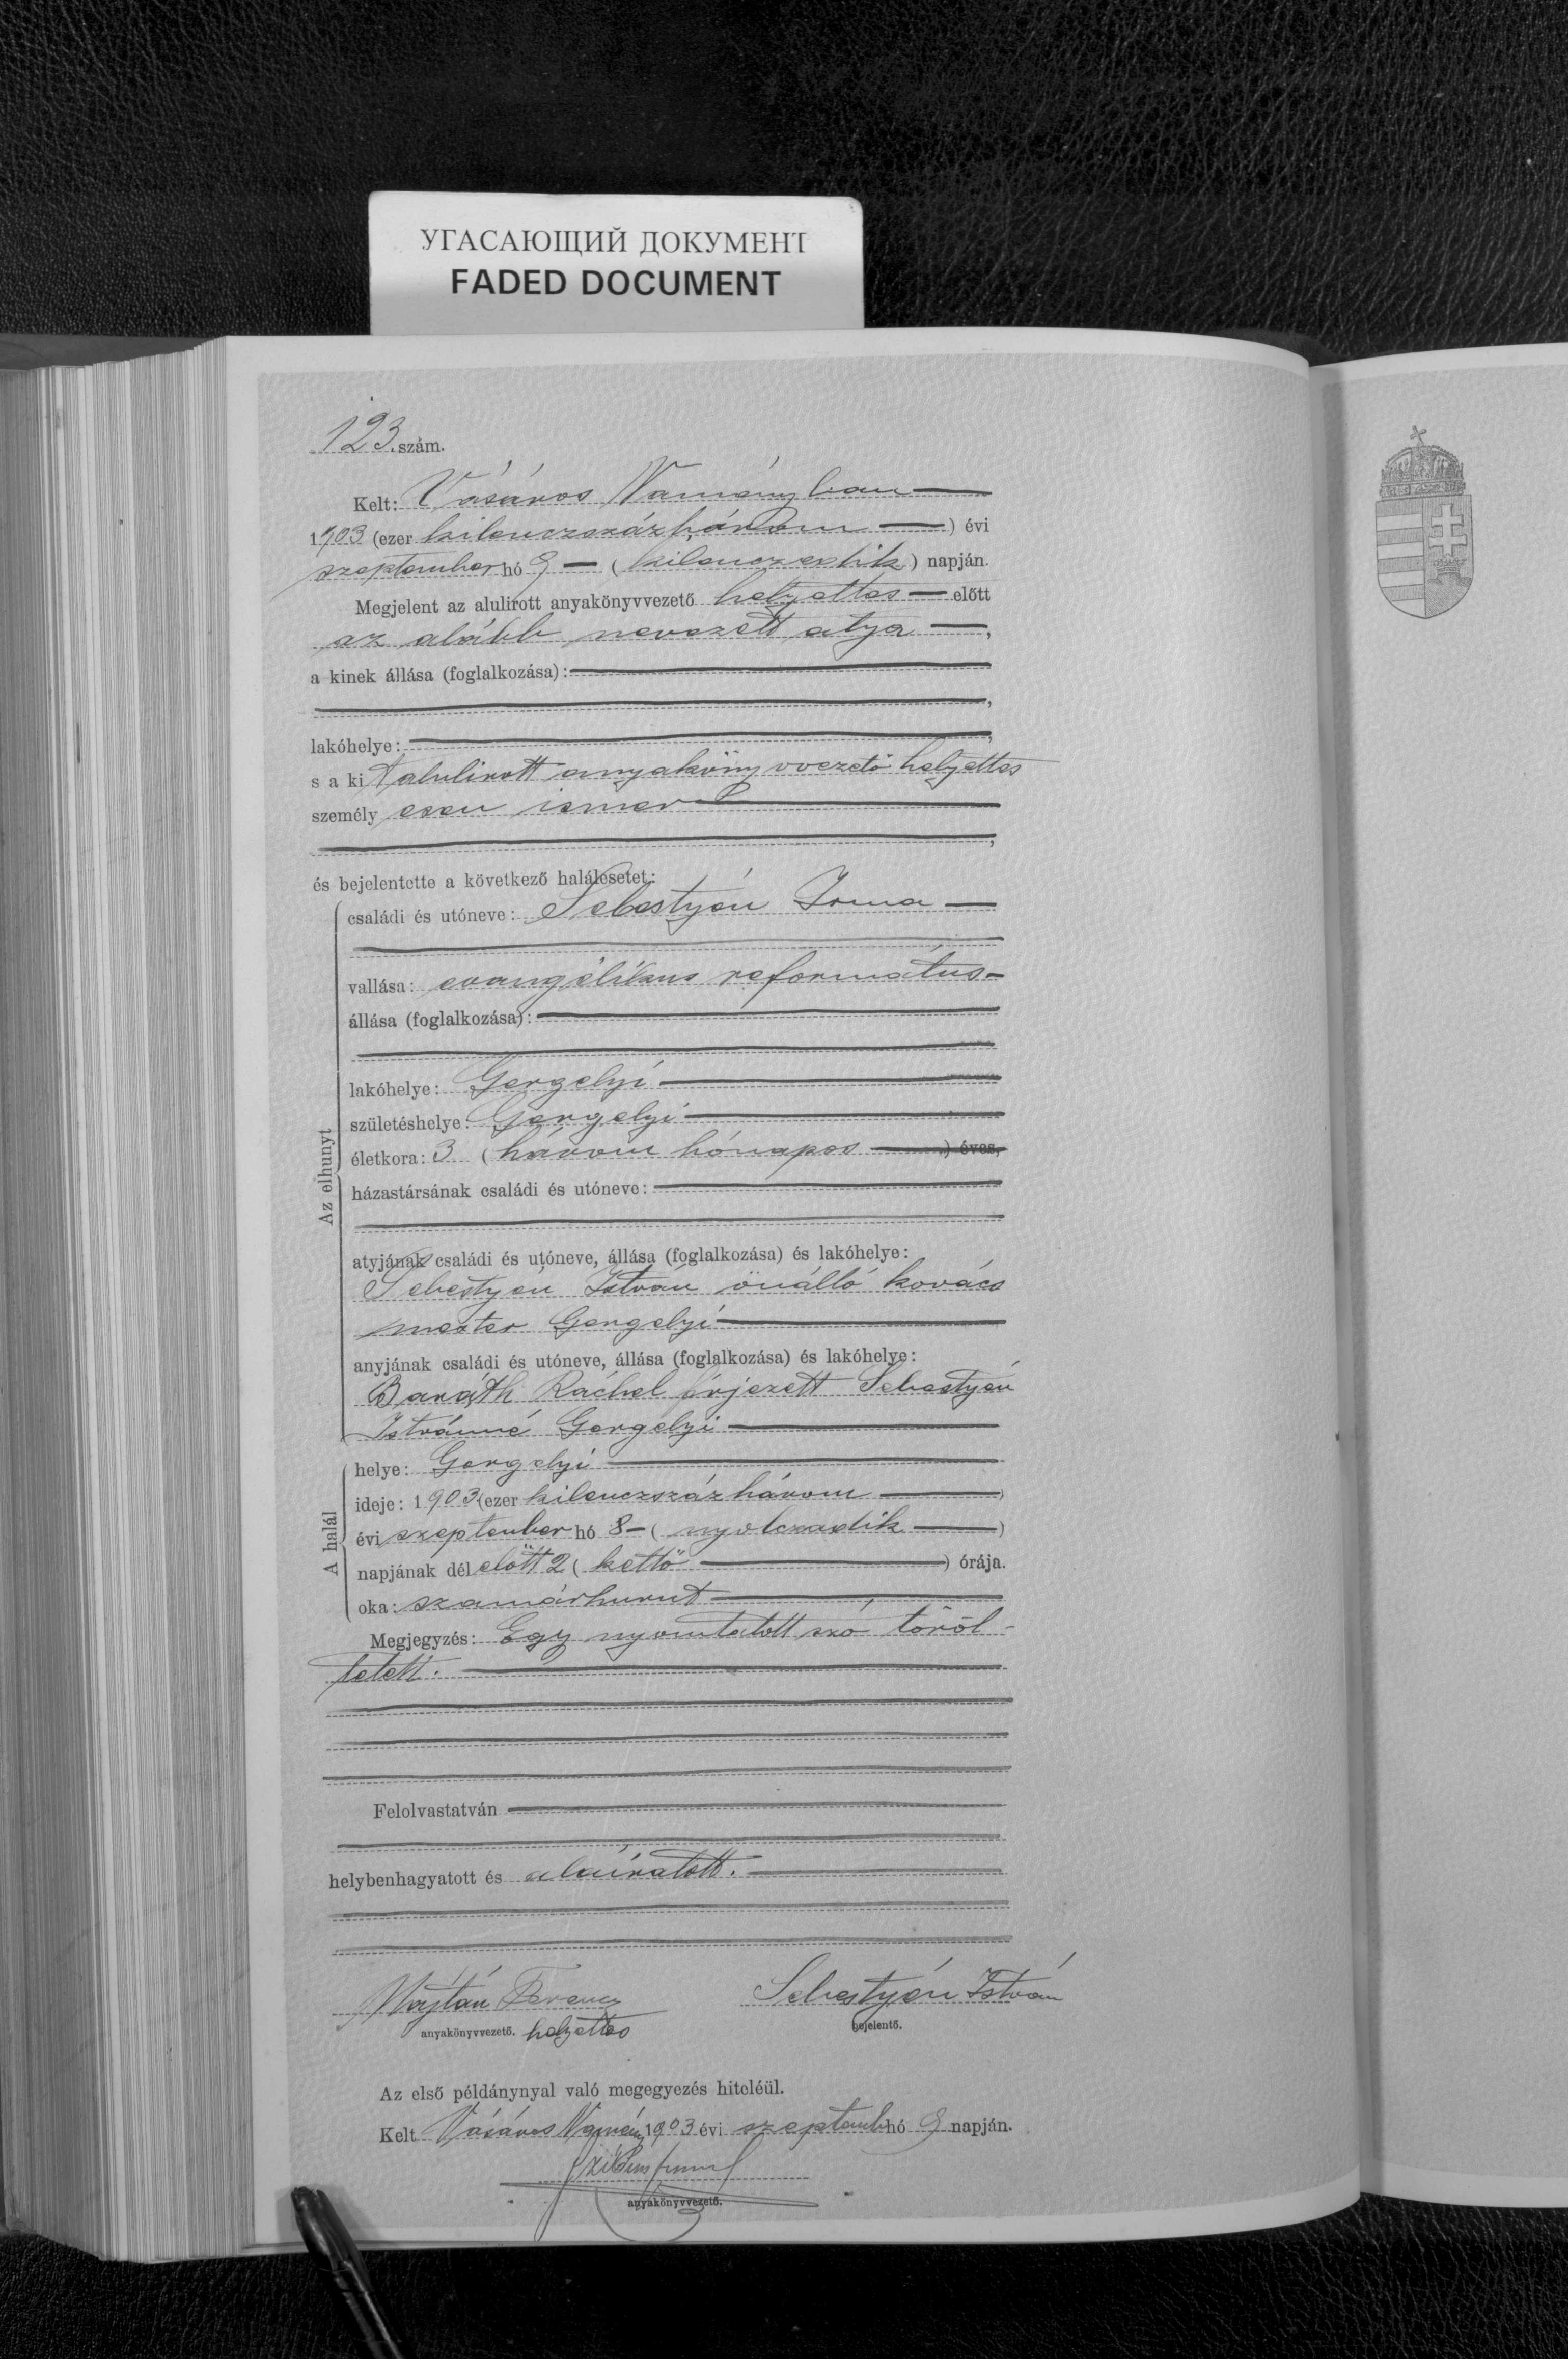 УГАСАЮЩИЙ ДОКУМЕНТ
FADED DOCUMENT
123. szám.
Kelt: Vásáros Naményban
1903 (ezer kilenczszázhárom) évi
szeptember hó 9 (kilenczedik) napján.
Megjelent az alulirott anyakönyvvezető helyettes előtt
az alább nevezett atya,
a kinek állása (foglalkozása):
,
lakóhelye: ,
s a ki t alulirott anyakönyvvezető helyettes
személy esen ismer
,
és bejelentette a következő halálesetet:
Az elhunyt
családi és utóneve: Sebestyén Irma
vallása: evangélikus református
állása (foglalkozása):
lakóhelye: Gergelyi
születéshelye: Gergelyi
életkora: 3 (három hónapos) éves,
házastársának családi és utóneve:
atyjának családi és utóneve, állása (foglalkozása) és lakóhelye:
Sebestyén István önálló kovács
mester Gergelyi
anyjának családi és utóneve, állása (foglalkozása) és lakóhelye:
Baráth Ráchel férjezett Sebestyén
Istvánné Gergelyi
A halál
helye: Gergelyi
ideje: 1903 (ezer kilenczszázhárom)
évi szeptember hó 8 (nyolczadik)
napjának dél előtt 2 (kettő) órája.
oka: szamárhurut
Megjegyzés: Egy nyomtatott szó töröl-
tetett.
Felolvastatván
helybenhagyatott és aláíratott.
Majtán Ferencz Sebestyén István
anyakönyvvezető. helyettes bejelentő.
Az első példánynyal való megegyezés hiteléül.
Kelt Vásáros Namény 1903 évi szeptemb hó 9 napján.
anyakönyvvezető.